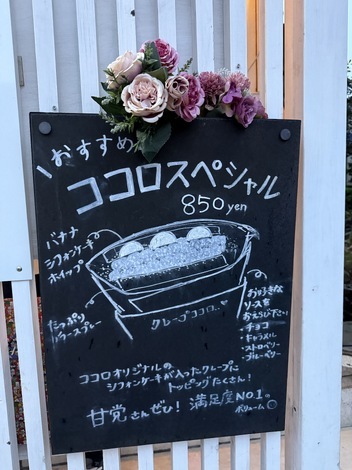 おすすめ
ココロスペシャル
850yen
バナナ
シフォンケーキ
ホイップ
たっぷり
カラースプレー
クレープココロ
お好きな
ソースを
おえらび下さい!
・チョコ
・キャラメル
・ストロベリー
・ブルーベリー
ココロオリジナルの
シフォンケーキが入ったクレープに
トッピングたくさん!
甘党さんぜひ! 満足度NO.1の
ボリューム